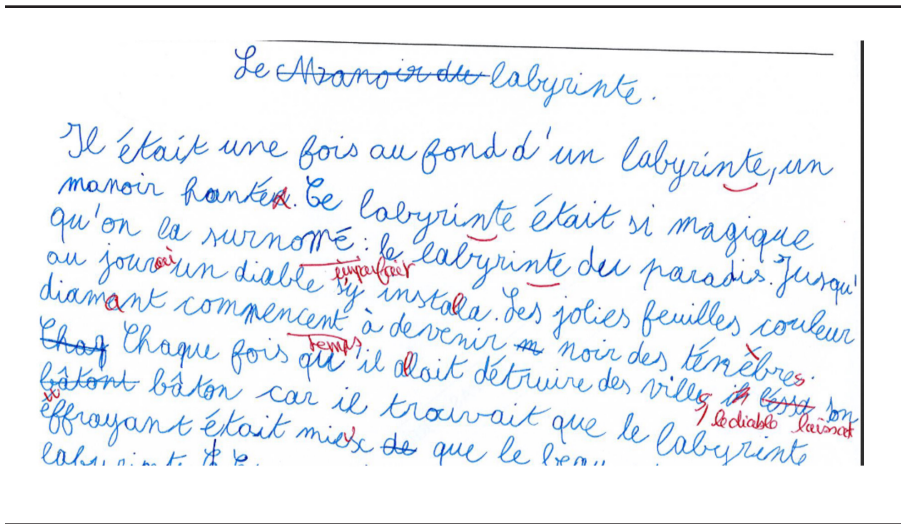 Le Manoir du labyrinte.
Il était une fois au fond d'un labyrinte, un
manoir hanter. Ce labyrinte était si magique
qu'on la surnomé : le labyrinte du paradis. Jusqu'
au jour où un diable imparfait s'y installa. Les jolies feuilles couleur
diamant commencent à devenir noir des ténèbres.
temps
Chaque fois qu'il allait détruire des villes, il son
le diable laissait
bâtont bâton car il trouvait que le labyrinte
effroyant était mieux de que le beau